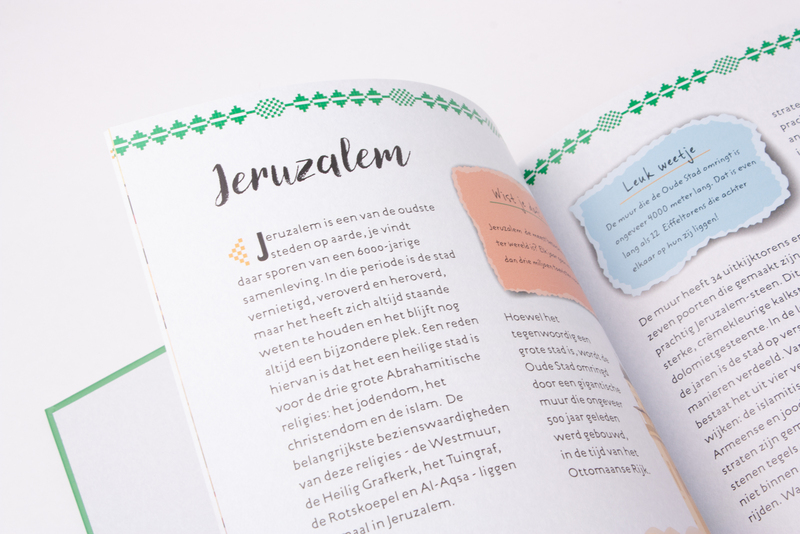 Jeruzalem
Jeruzalem is een van de oudste
steden op aarde, je vindt
daar sporen van een 6000-jarige
samenleving. In die periode is de stad
vernietigd, veroverd en heroverd,
maar het heeft zich altijd staande
weten te houden en het blijft nog
altijd een bijzondere plek. Een reden
hiervan is dat het een heilige stad is
voor de drie grote Abrahamitische
religies: het jodendom, het
christendom en de islam. De
belangrijkste bezienswaardigheden
van deze religies - de Westmuur,
de Heilig Grafkerk, het Tuingraf,
de Rotskoepel en Al-Aqsa - liggen
maal in Jeruzalem.
Wist je
Jeruzalem de
ter wereld is? Elk jaar
dan drie miljoen
Hoewel het
tegenwoordig een
grote stad is, wordt de
Oude Stad omringd
door een gigantische
muur die ongeveer
500 jaar geleden
werd gebouwd,
in de tijd van het
Ottomaanse Rijk.
Leuk weetje
De muur die de Oude Stad omringt is
ongeveer 4000 meter lang. Dat is even
lang als 12 Eiffeltorens die achter
elkaar op hun zij liggen!
De muur heeft 34 uitkijktorens
zeven poorten die gemaakt zijn
prachtig Jeruzalem-steen. Dit
sterke, crèmekleurige
dolomietgesteente. In de
de jaren is de stad op
manieren verdeeld.
bestaat het uit vier
wijken: de
Armeense en
straten zijn
stenen tegels
niet binnen
rijden.